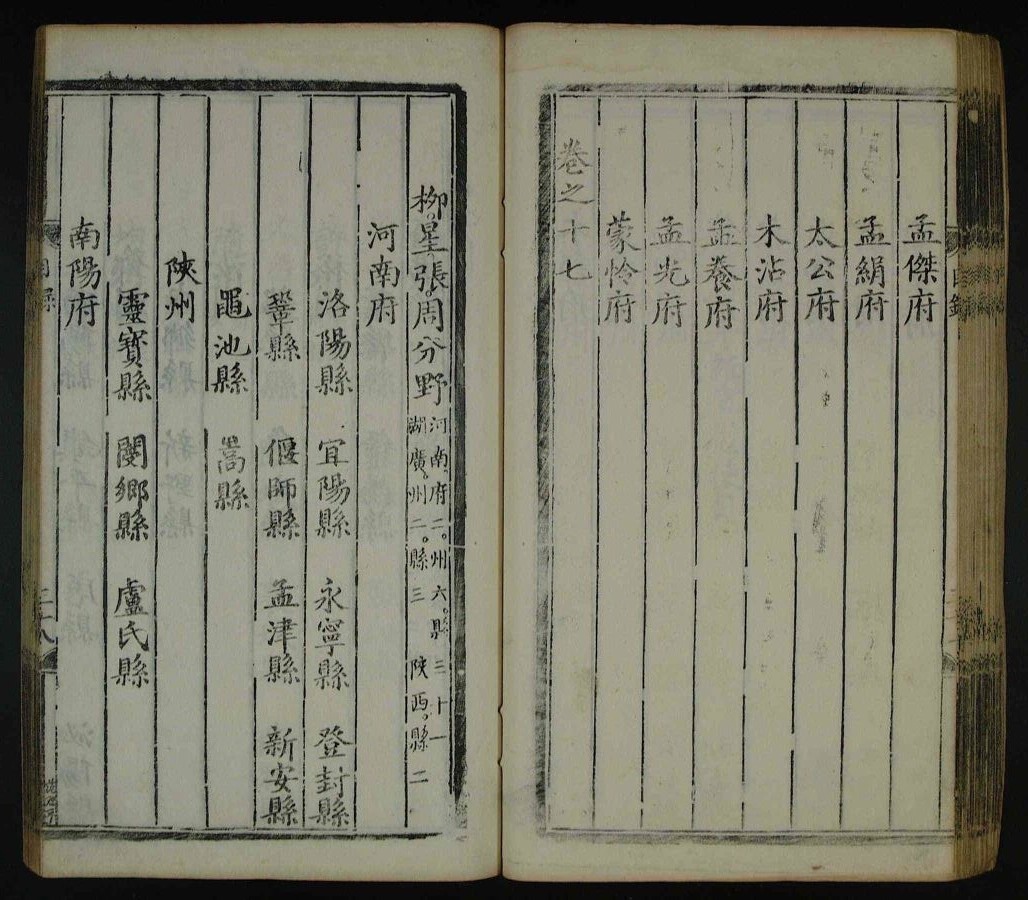 孟傑府
孟絹府
太公府
木沾府
孟養府
孟光府
蒙怜府
卷之十七
柳星張周分野 河南府二州六縣三十一
湖廣州二縣三 陝西縣二
河南府
洛陽縣 宜陽縣 永寧縣 登封縣
鞏縣 偃師縣 孟津縣 新安縣
黽池縣 嵩縣
陝州
靈寶縣 閿鄉縣 盧氏縣
南陽府